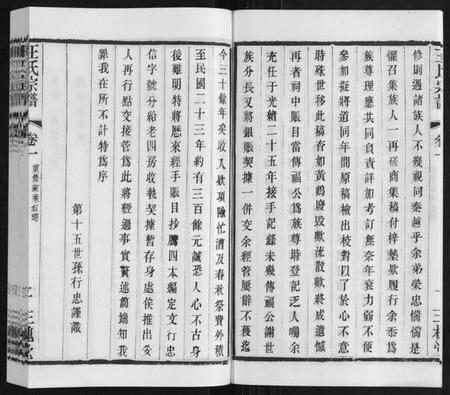 王氏宗譜
卷一
修則遇諸族人不幾視同秦越乎余弟榮忠惴惴是
懼召集族人一再磋商集稿付梓墊歇履行余忝爲
族尊理應共同負責詳加考訂無奈年衰力弱不便
參加擬將道同年間原稿檢出校對以了於心不意
時殊世移此稿杳如黃鶴廢毀歟流散歟終成遺憾
再者祠中賬目當傳福公爲族尊時登記乏人囑余
充任于光緒二十五年接手記錄未幾傳福公謝世
族分長又將銀賬契據一併交余經管屢辭不獲迄
王氏宗譜
卷一
重修家乘叙略
二
三槐堂
今三十餘年矣收入欵項險忙漕及春秋祭費外積
至民國二十三年約有三百餘元誠恐人心不古身
後難明特將歷來經手賬目抄謄四本編定文行忠
信字號分給老四房收執契據暫存身處俟推出妥
人再行點交接管爲此將經過事實贅述簡端知我
罪我在所不計特爲序
第十五世孫行忠謹識